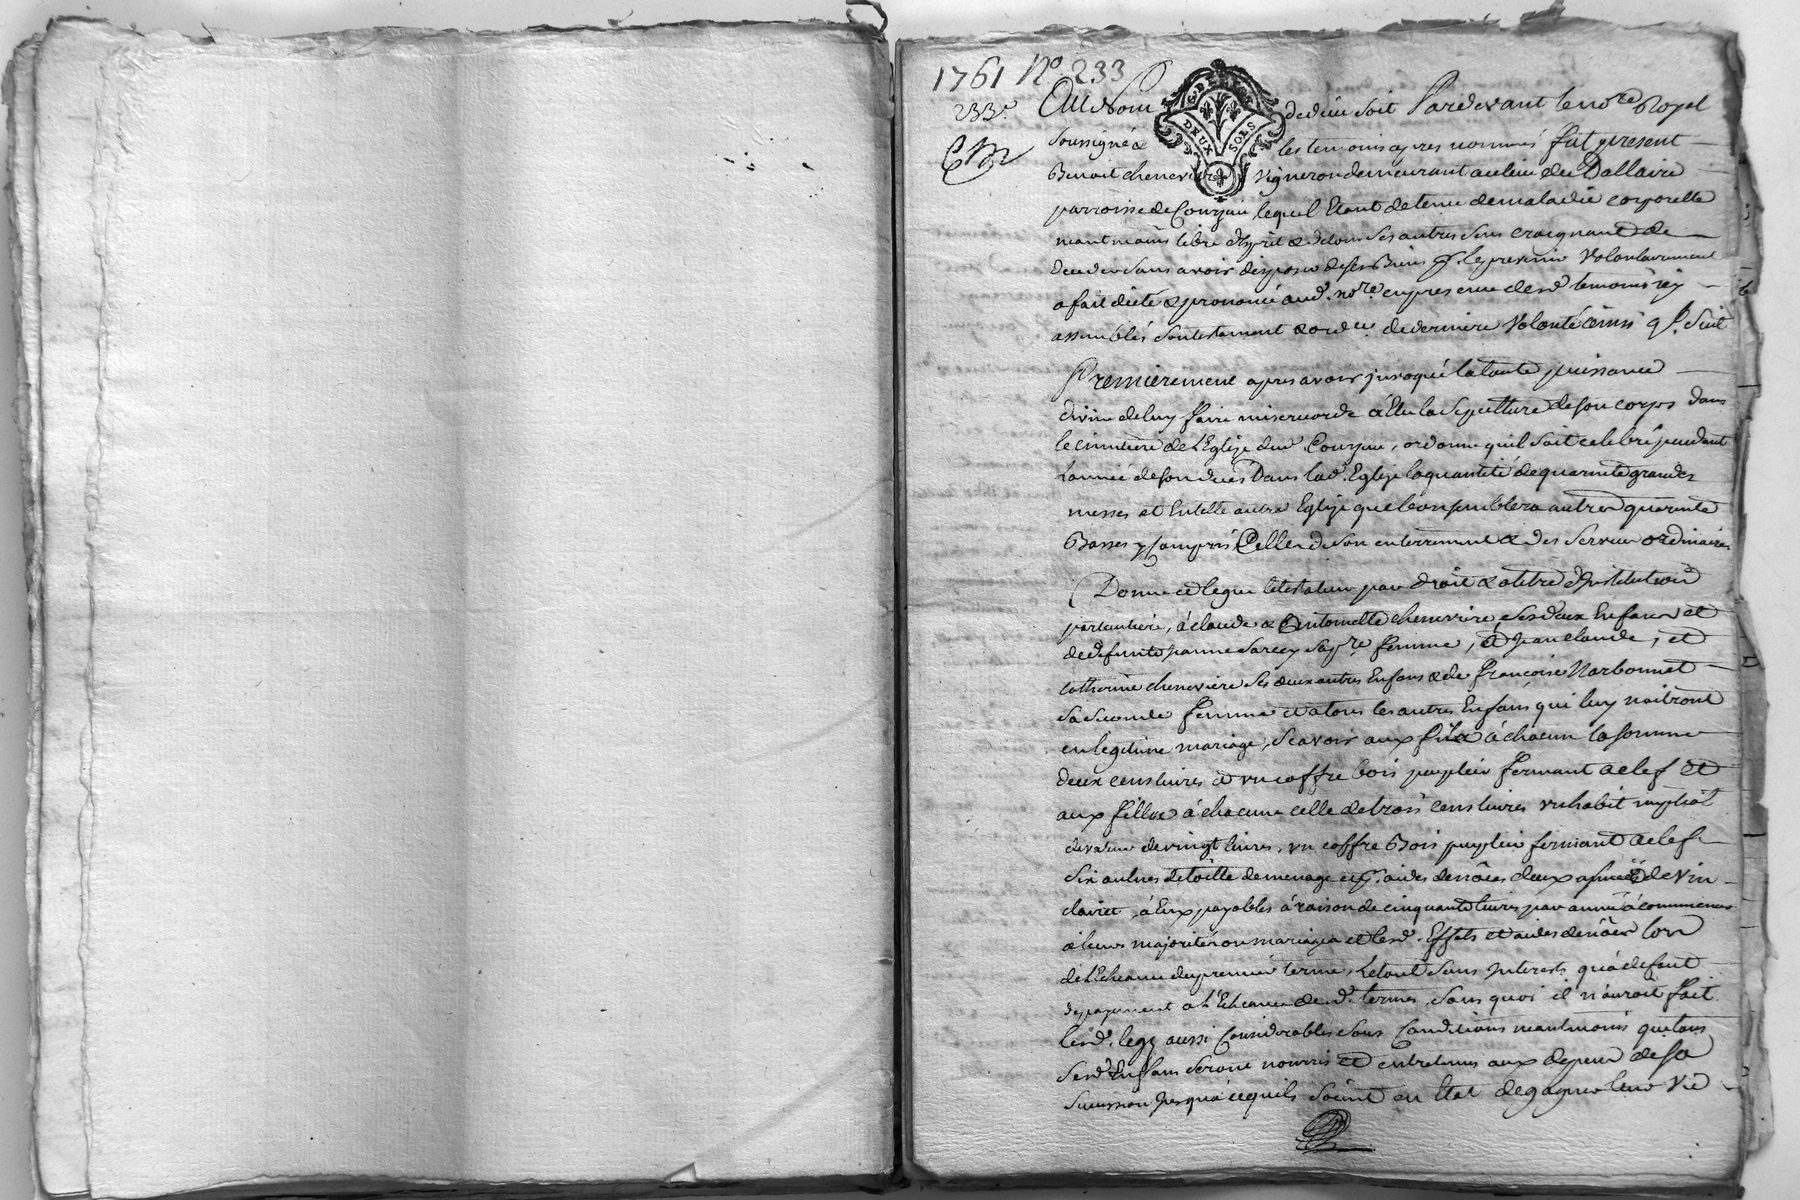 1761 No. 233
233e
G. DE LYON
DEUX SOLS
Au Nom de dieu soit Pardevant le no.re Royal
soussigné & les temoins apres nommés fut present
Benoit chenevière vigneron demeurant au lieu du Dallaire
parroisse de Courzieu, lequel Etant detenu de maladie corporelle
neantmoins libre d'Esprit & de tous ses autres sens craignant de
deceder sans avoir disposé de ses Biens p.r le prevenir volontairement
a fait dicté & prononcé aud. no.re en presence desd. temoins icy
assemblés son testament & ord.ce de derniere volonté ainsi q.l suit
Premierement apres avoir invoqué la toute puissance
divine de luy faire misericorde a Elu la sepulture de son corps dans
le cimetiere de l'Eglise dud. Courzieu, ordonne quil soit celebré pendant
l'année de son decès Dans lad. Eglise la quantité de quarante grandes
messes et En telle autre Eglise que bon semblera autres quarante
Basses y compris Celles de son enterrement & des services ordinaires
Donne et legue le testateur par droit & a titre d'Institution
particuliere, à claude & antoinette chenevière, ses deux Enfans et
de defunte jeanne sa p.re femme, et jean claude, et
catherine chenevière ses deux autres Enfans & de françoise Narbonnet
sa seconde femme et a tous les autres Enfans qui luy naitront
en legitime mariage, scavoir aux fils à chacun la somme
deux cens livres et un coffre bois peuplier fermant a clef et
aux filles à chacune celle de trois cens livres un habit nuptial
de valeur de vingt livres, un coffre Bois peuplier fermant a clef
six aulnes de toille de menage et p.r aides de nôces deux asnées de vin
clairet, à Eux payables à raison de cinquante livres par année à commencer
à leurs majorités ou mariages et lesd. Effets et aides de nôces lors
de l'Echeance du premier terme, Le tout sans Interets qu'à defaut
de payement a l'Echeance desd. termes, sans quoi il n'auroit fait
lesd. legs aussi considerables sous Conditions neantmoins que tous
sesd. Enfans seront nourris et entretenus aux depens de sa
succession jusqu'à ce quils soient en Etat de gagner leur vie